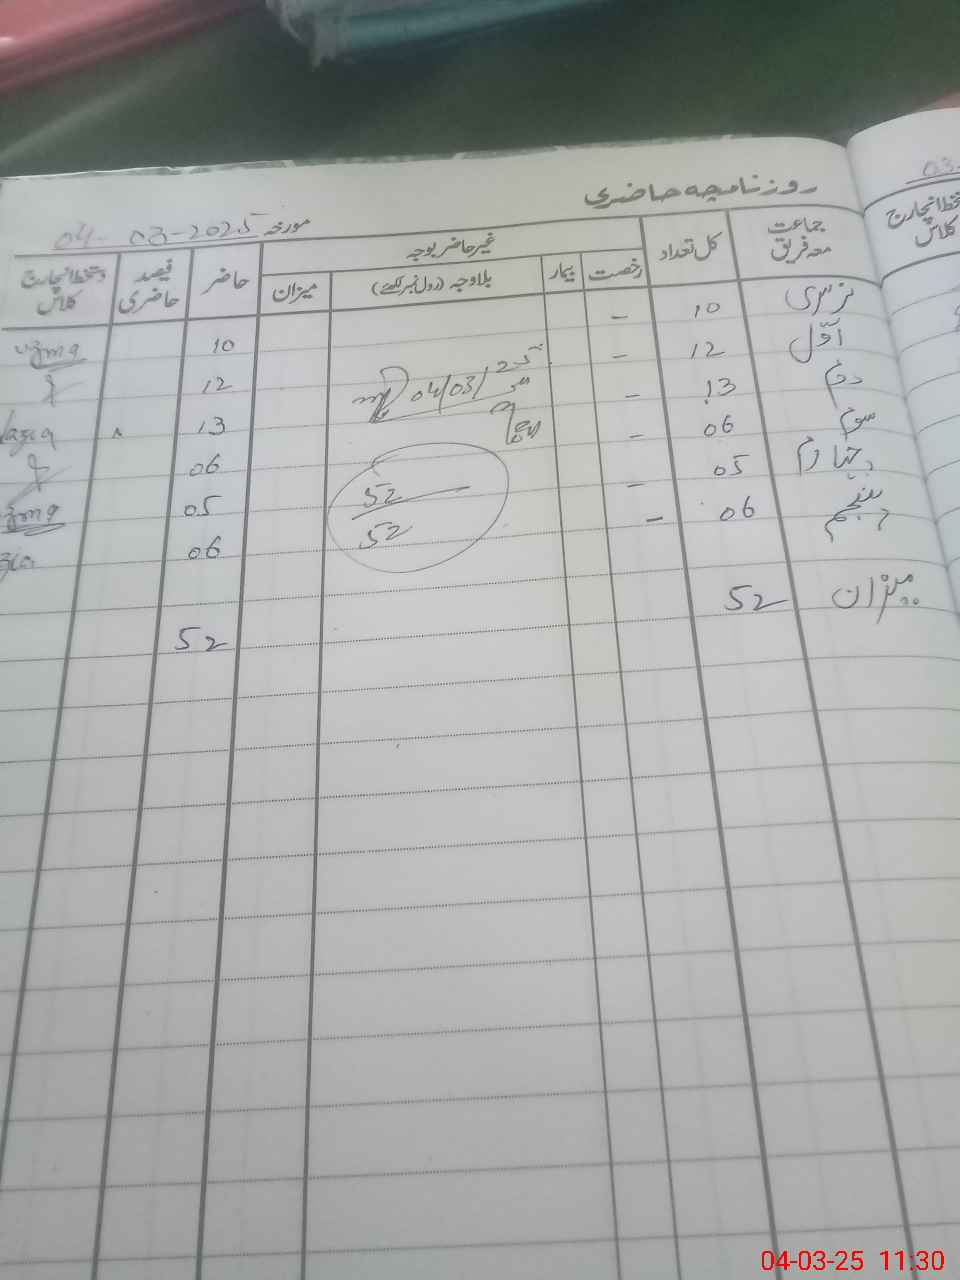 روزنامچہ حاضری
مورخہ 04-03-2025
جماعت معہ فریق کل تعداد غیر حاضر بوجہ حاضر فیصد حاضری دستخط انچارج کلاس
رخصت بیمار بلاوجہ (رول نمبر لکھئے) میزان
نرسری 10 - 10
اوّل 12 - 12
دوم 13 - 13
سوم 06 - 06
چہارم 05 - 05
پنجم 06 - 06
میزان 52 52
04/03/25
52
52
03-
دستخط انچارج
کلاس
04-03-25 11:30